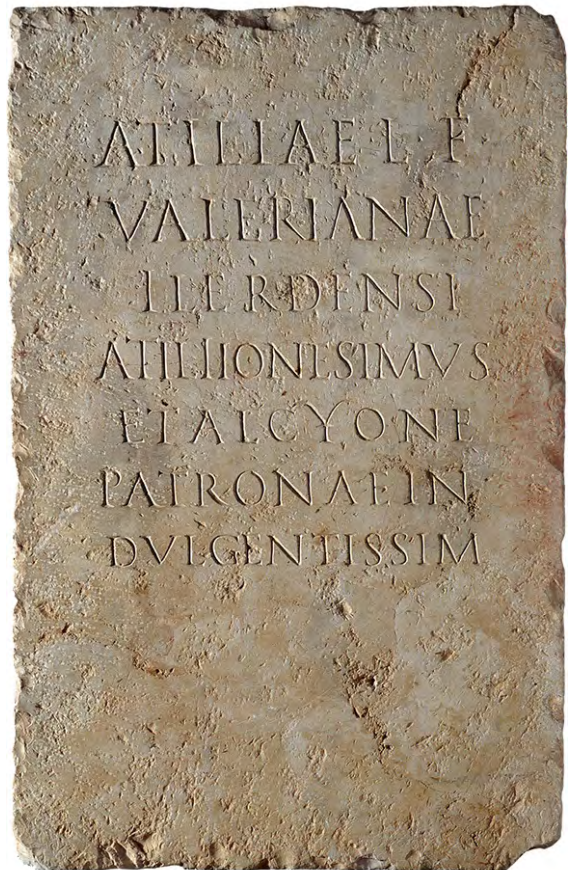 ATILIAE L F
VALERIANAE
ILERDENSI
ATILII ONESIMVS
ET ALCYONE
PATRONAE IN
DVLGENTISSIM